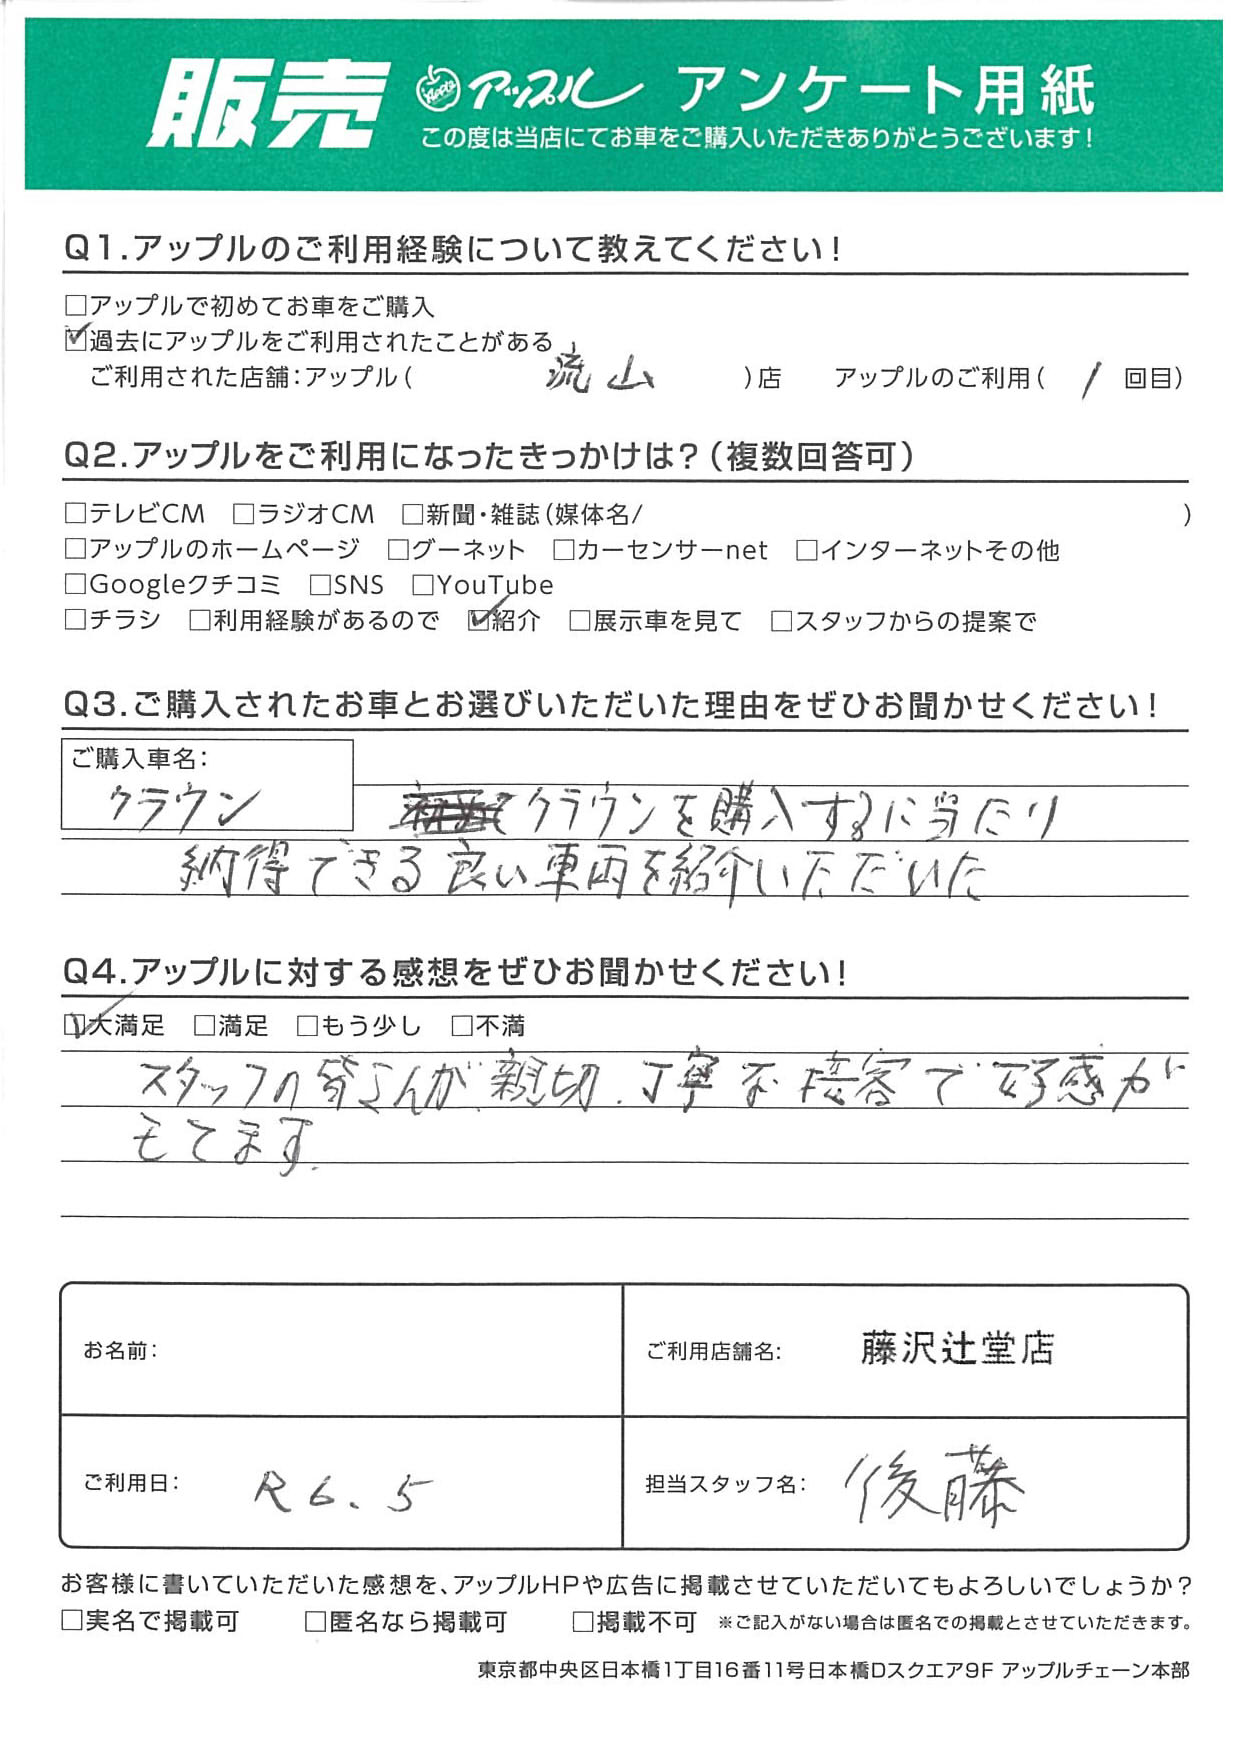 販売 Apple アップル アンケート用紙
この度は当店にてお車をご購入いただきありがとうございます!
Q1.アップルのご利用経験について教えてください!
□アップルで初めてお車をご購入
☑過去にアップルをご利用されたことがある
ご利用された店舗:アップル( 流山 )店 アップルのご利用( 1 回目)
Q2.アップルをご利用になったきっかけは?(複数回答可)
□テレビCM □ラジオCM □新聞・雑誌(媒体名/ )
□アップルのホームページ □グーネット □カーセンサーnet □インターネットその他
□Googleクチコミ □SNS □YouTube
□チラシ □利用経験があるので ☑紹介 □展示車を見て □スタッフからの提案で
Q3.ご購入されたお車とお選びいただいた理由をぜひお聞かせください!
ご購入車名:
クラウン
クラウンを購入するに当たり
納得できる良い車両を紹介いただいた
Q4.アップルに対する感想をぜひお聞かせください!
☑大満足 □満足 □もう少し □不満
スタッフの皆さんが親切.丁寧な接客で好感が
もてます.
お名前: ご利用店舗名: 藤沢辻堂店
ご利用日: R6.5 担当スタッフ名: 後藤
お客様に書いていただいた感想を、アップルHPや広告に掲載させていただいてもよろしいでしょうか?
□実名で掲載可 □匿名なら掲載可 □掲載不可 ※ご記入がない場合は匿名での掲載とさせていただきます。
東京都中央区日本橋1丁目16番11号日本橋Dスクエア9F アップルチェーン本部